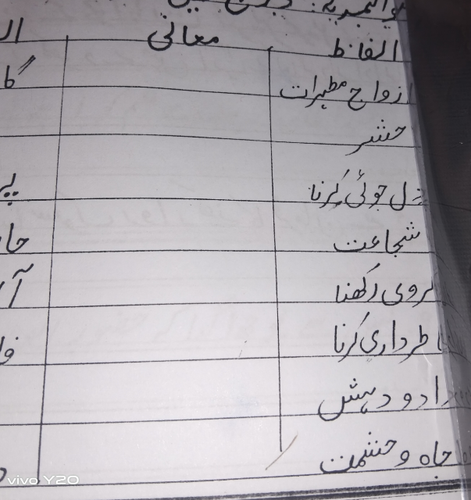 الفاظ معانی ال
ازواج مطہرات گا
حشر
دل جوئی کرنا پر
شجاعت حا
گروی رکھنا آ
خاطرداری کرنا فو
داد و دہش
جاہ و حشمت
vivo Y20